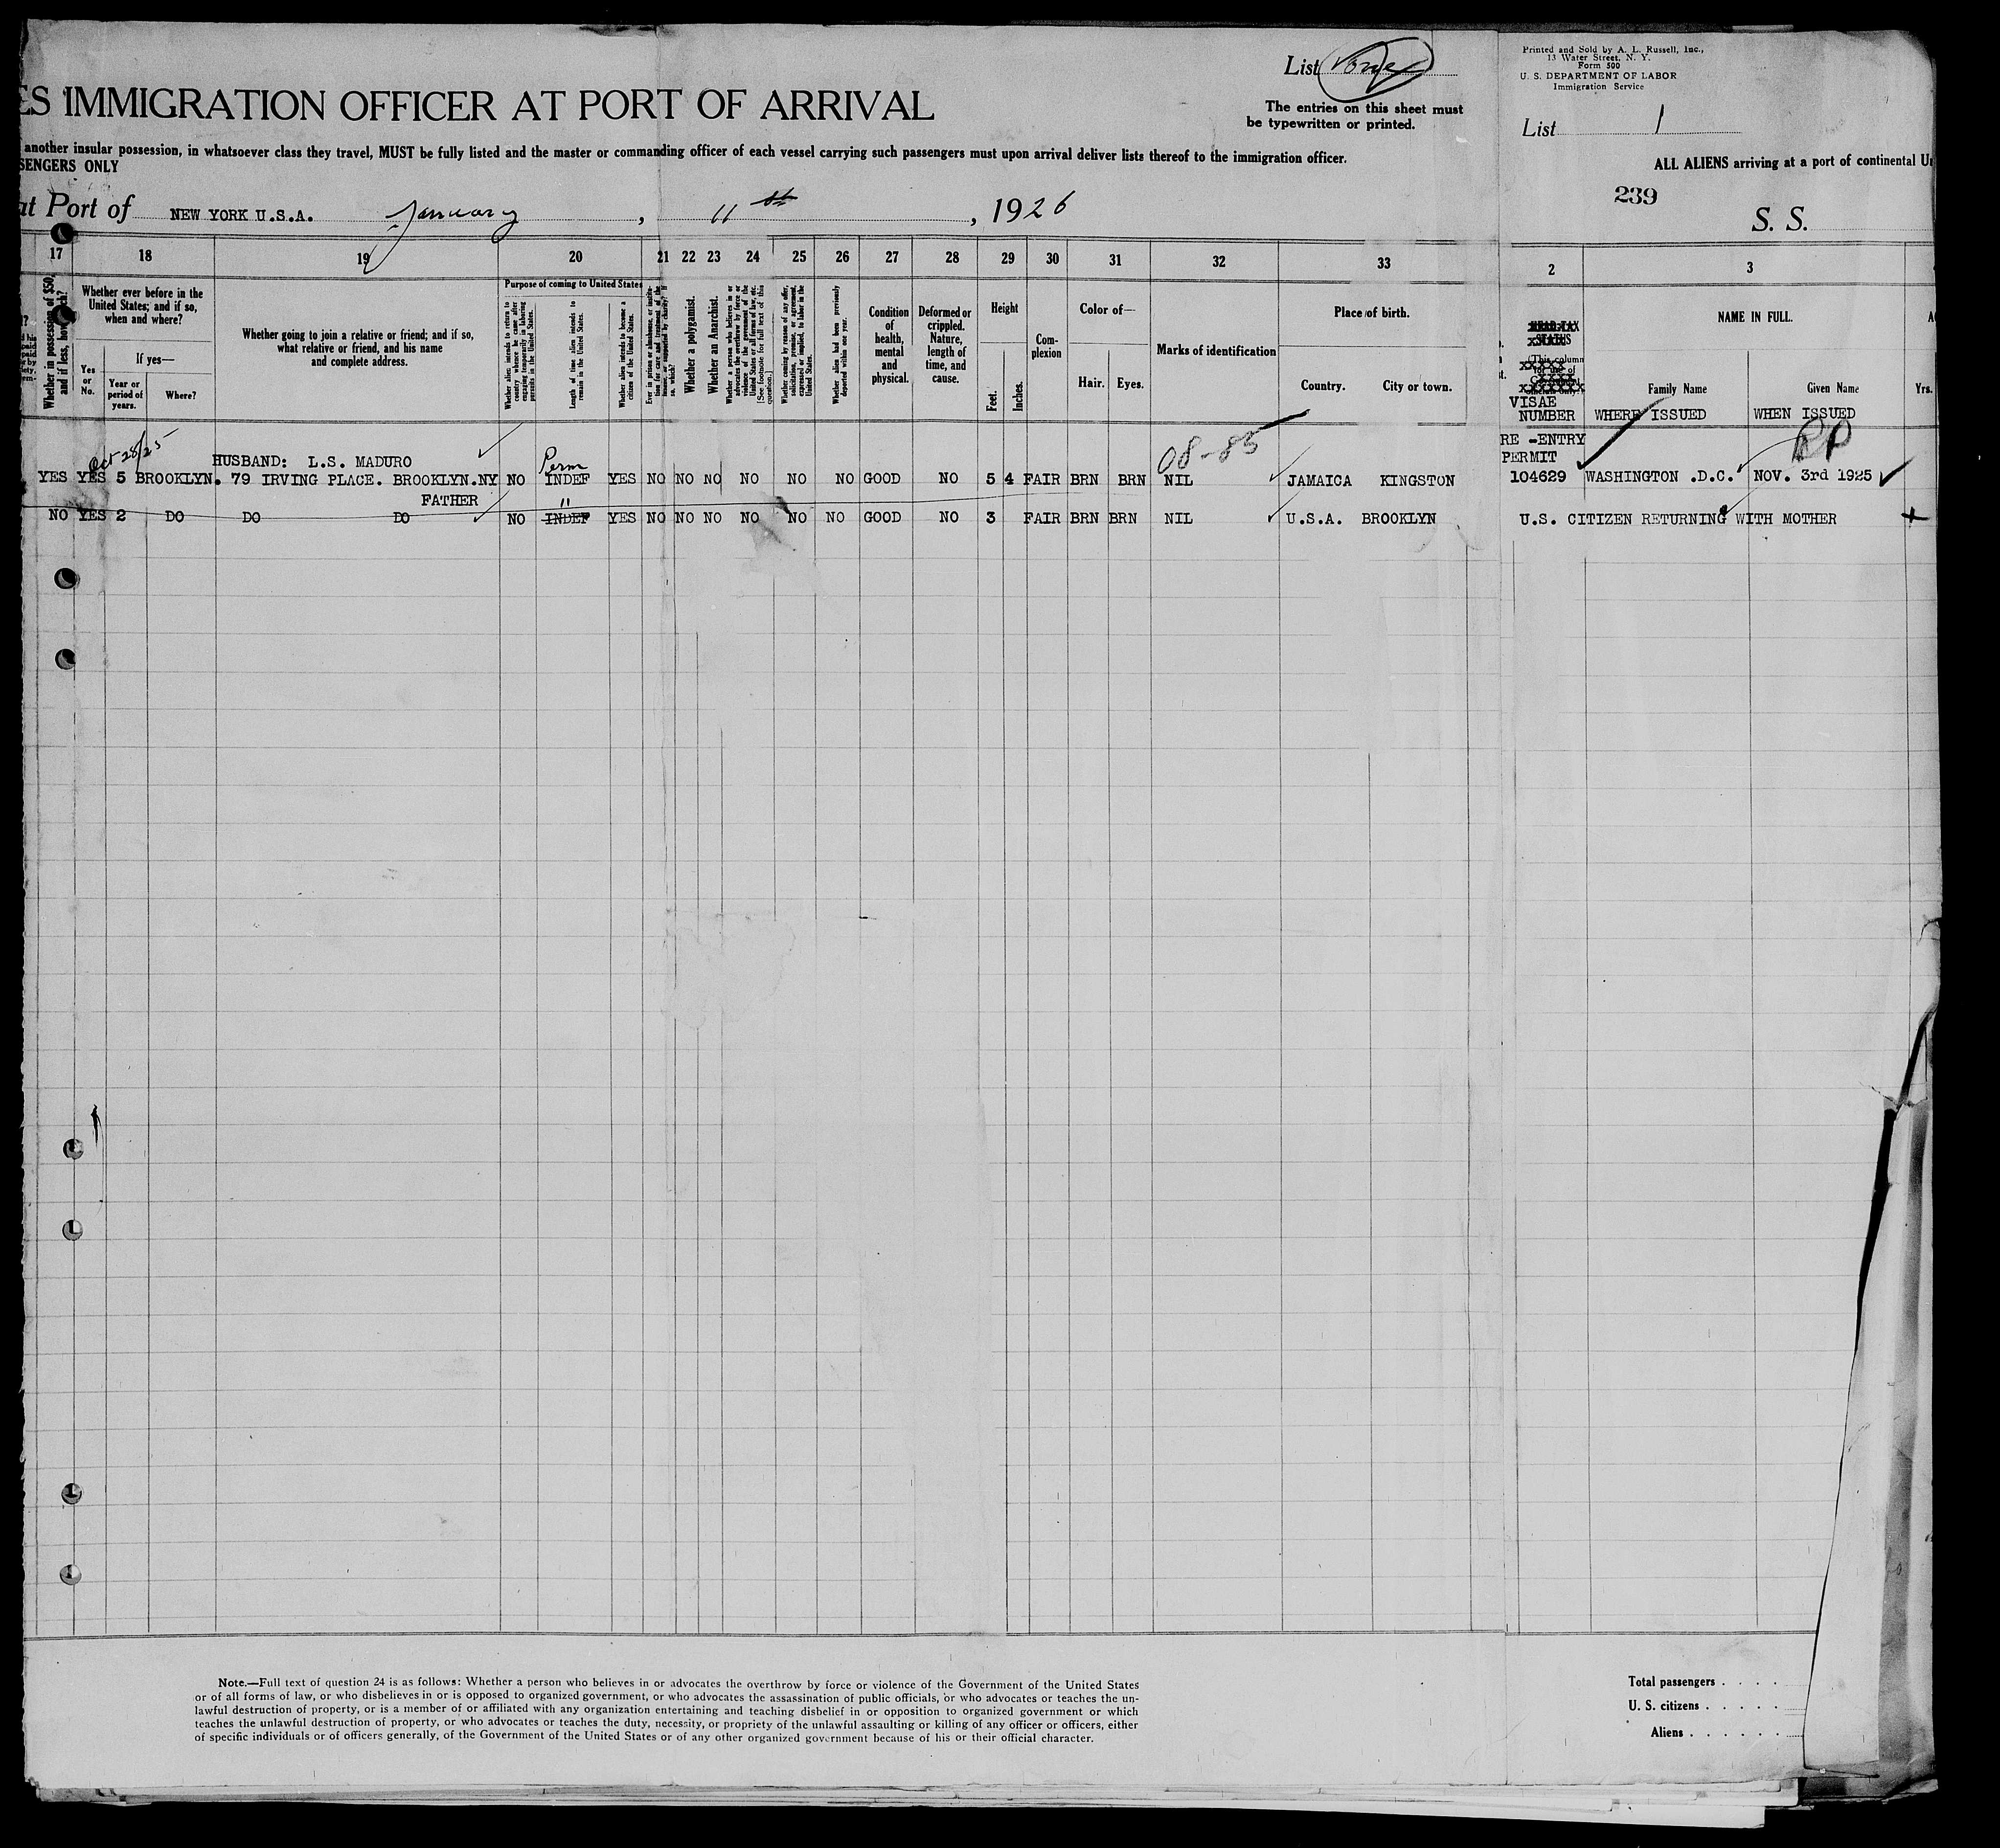 List
ES IMMIGRATION OFFICER AT PORT OF ARRIVAL
The entries on this sheet must
be typewritten or printed.
another insular possession, in whatsoever class they travel, MUST be fully listed and the master or commanding officer of each vessel carrying such passengers must upon arrival deliver lists thereof to the immigration officer.
SENGERS ONLY
at Port of NEW YORK U.S.A. January, 11th, 1926
17 18 19 20 21 22 23 24 25 26 27 28 29 30 31 32 33
Whether in possession of $50, and if less, how much?
Whether ever before in the
United States; and if so,
when and where?
Yes
or
No.
If yes—
Year or
period of
years.
Where?
Whether going to join a relative or friend; and if so,
what relative or friend, and his name
and complete address.
Purpose of coming to United States
Whether alien intends to return to
country whence he came after
engaging temporarily in laboring
pursuits in the United States.
Length of time alien intends to
remain in the United States.
Whether alien intends to become a
citizen of the United States.
Whether a polygamist.
Whether an Anarchist.
Whether a person who believes in or
advocates the overthrow by force or
violence of the Government of the
United States or all forms of law, etc.
[See footnote for full text of this
question.]
Whether coming by reason of any offer,
solicitation, promise, or agreement,
expressed or implied, to labor in the
United States.
Whether alien had been previously
deported within one year.
Condition
of
health,
mental
and
physical.
Deformed or
crippled.
Nature,
length of
time, and
cause.
Height
Feet.
Inches.
Com-
plexion
Color of—
Hair. Eyes.
Marks of identification
Place of birth.
Country. City or town.
Oct 28/25
HUSBAND: L.S. MADURO
Perm
08-85
YES YES 5 BROOKLYN. 79 IRVING PLACE. BROOKLYN.NY NO INDEF YES NO NO NO NO NO NO GOOD NO 5 4 FAIR BRN BRN NIL JAMAICA KINGSTON
FATHER "
NO YES 2 DO DO DO NO INDEF YES NO NO NO NO NO NO GOOD NO 3 FAIR BRN BRN NIL U.S.A. BROOKLYN
Note.—Full text of question 24 is as follows: Whether a person who believes in or advocates the overthrow by force or violence of the Government of the United States
or of all forms of law, or who disbelieves in or is opposed to organized government, or who advocates the assassination of public officials, or who advocates or teaches the un-
lawful destruction of property, or is a member of or affiliated with any organization entertaining and teaching disbelief in or opposition to organized government or which
teaches the unlawful destruction of property, or who advocates or teaches the duty, necessity, or propriety of the unlawful assaulting or killing of any officer or officers, either
of specific individuals or of officers generally, of the Government of the United States or of any other organized government because of his or their official character.
Printed and Sold by A. L. Russell, Inc.,
13 Water Street, N. Y.
Form 500
U. S. DEPARTMENT OF LABOR
Immigration Service
List 1
ALL ALIENS arriving at a port of continental Un
239
S. S.
2 3
HEAD-TAX
STATUS
(This column
for use of
NAME IN FULL.
Family Name Given Name Yrs.
VISAE
NUMBER WHERE ISSUED WHEN ISSUED
RE -ENTRY
PERMIT
104629 WASHINGTON .D.C. NOV. 3rd 1925
U.S. CITIZEN RETURNING WITH MOTHER
Total passengers
U. S. citizens
Aliens